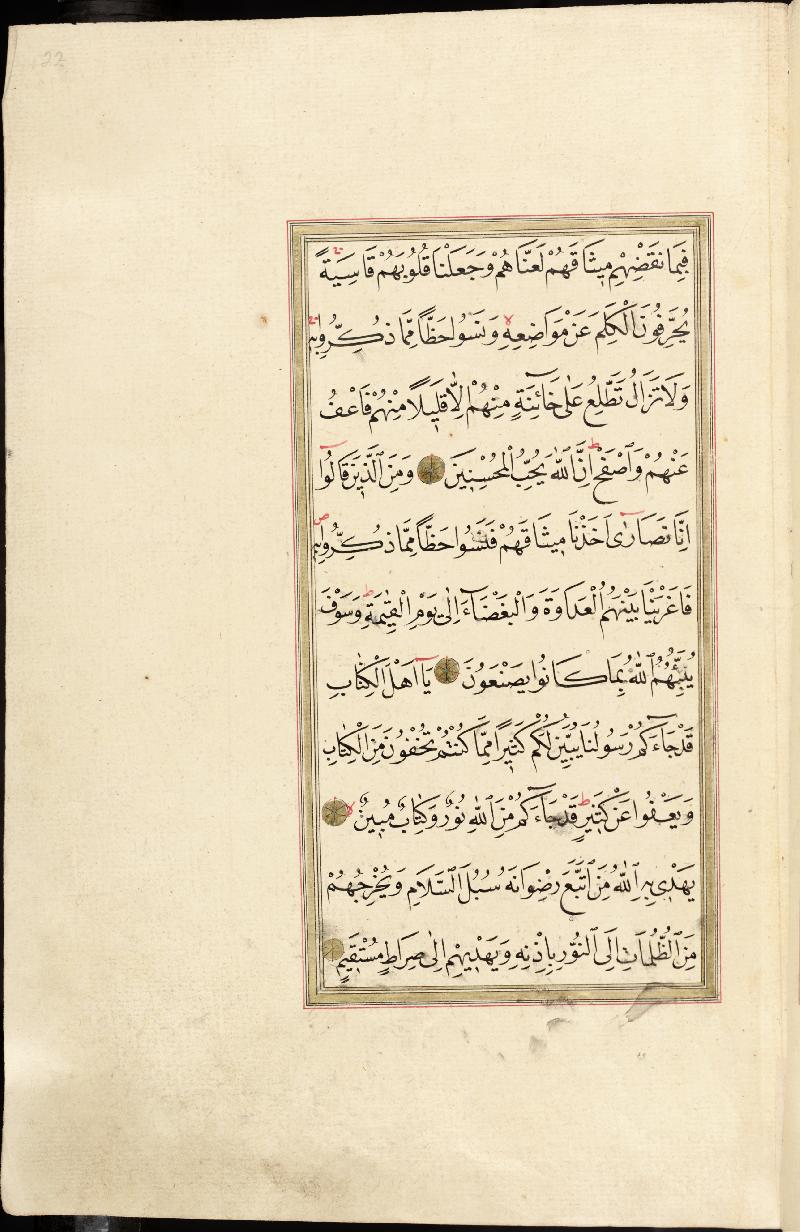 22
فَبِمَا نَقْضِهِمْ مِيثَاقَهُمْ لَعَنَّاهُمْ وَجَعَلْنَا قُلُوبَهُمْ قَاسِيَةً
يُحَرِّفُونَ الْكَلِمَ عَنْ مَوَاضِعِهِ وَنَسُوا حَظًّا مِمَّا ذُكِّرُوا بِهِ
وَلَا تَزَالُ تَطَّلِعُ عَلَى خَائِنَةٍ مِنْهُمْ إِلَّا قَلِيلًا مِنْهُمْ فَاعْفُ
عَنْهُمْ وَاصْفَحْ إِنَّ اللّٰهَ يُحِبُّ الْمُحْسِنِينَ وَمِنَ الَّذِينَ قَالُوا
اِنَّا نَصَارٰى اَخَذْنَا مِيثَاقَهُمْ فَنَسُوا حَظًّا مِمَّا ذُكِّرُوا بِهِ
فَاَغْرَيْنَا بَيْنَهُمُ الْعَدَاوَةَ وَالْبَغْضَاءَ اِلٰى يَوْمِ الْقِيٰمَةِ وَسَوْفَ
يُنَبِّئُهُمُ اللّٰهُ بِمَا كَانُوا يَصْنَعُونَ يَا اَهْلَ الْكِتَابِ
قَدْ جَاءَكُمْ رَسُولُنَا يُبَيِّنُ لَكُمْ كَثِيرًا مِمَّا كُنْتُمْ تُخْفُونَ مِنَ الْكِتَابِ
وَيَعْفُوا عَنْ كَثِيرٍ قَدْ جَاءَكُمْ مِنَ اللّٰهِ نُورٌ وَكِتَابٌ مُبِينٌ
يَهْدِي بِهِ اللّٰهُ مَنِ اتَّبَعَ رِضْوَانَهُ سُبُلَ السَّلَامِ وَيُخْرِجُهُمْ
مِنَ الظُّلُمَاتِ اِلَى النُّورِ بِاِذْنِهِ وَيَهْدِيهِمْ اِلٰى صِرَاطٍ مُسْتَقِيمٍ